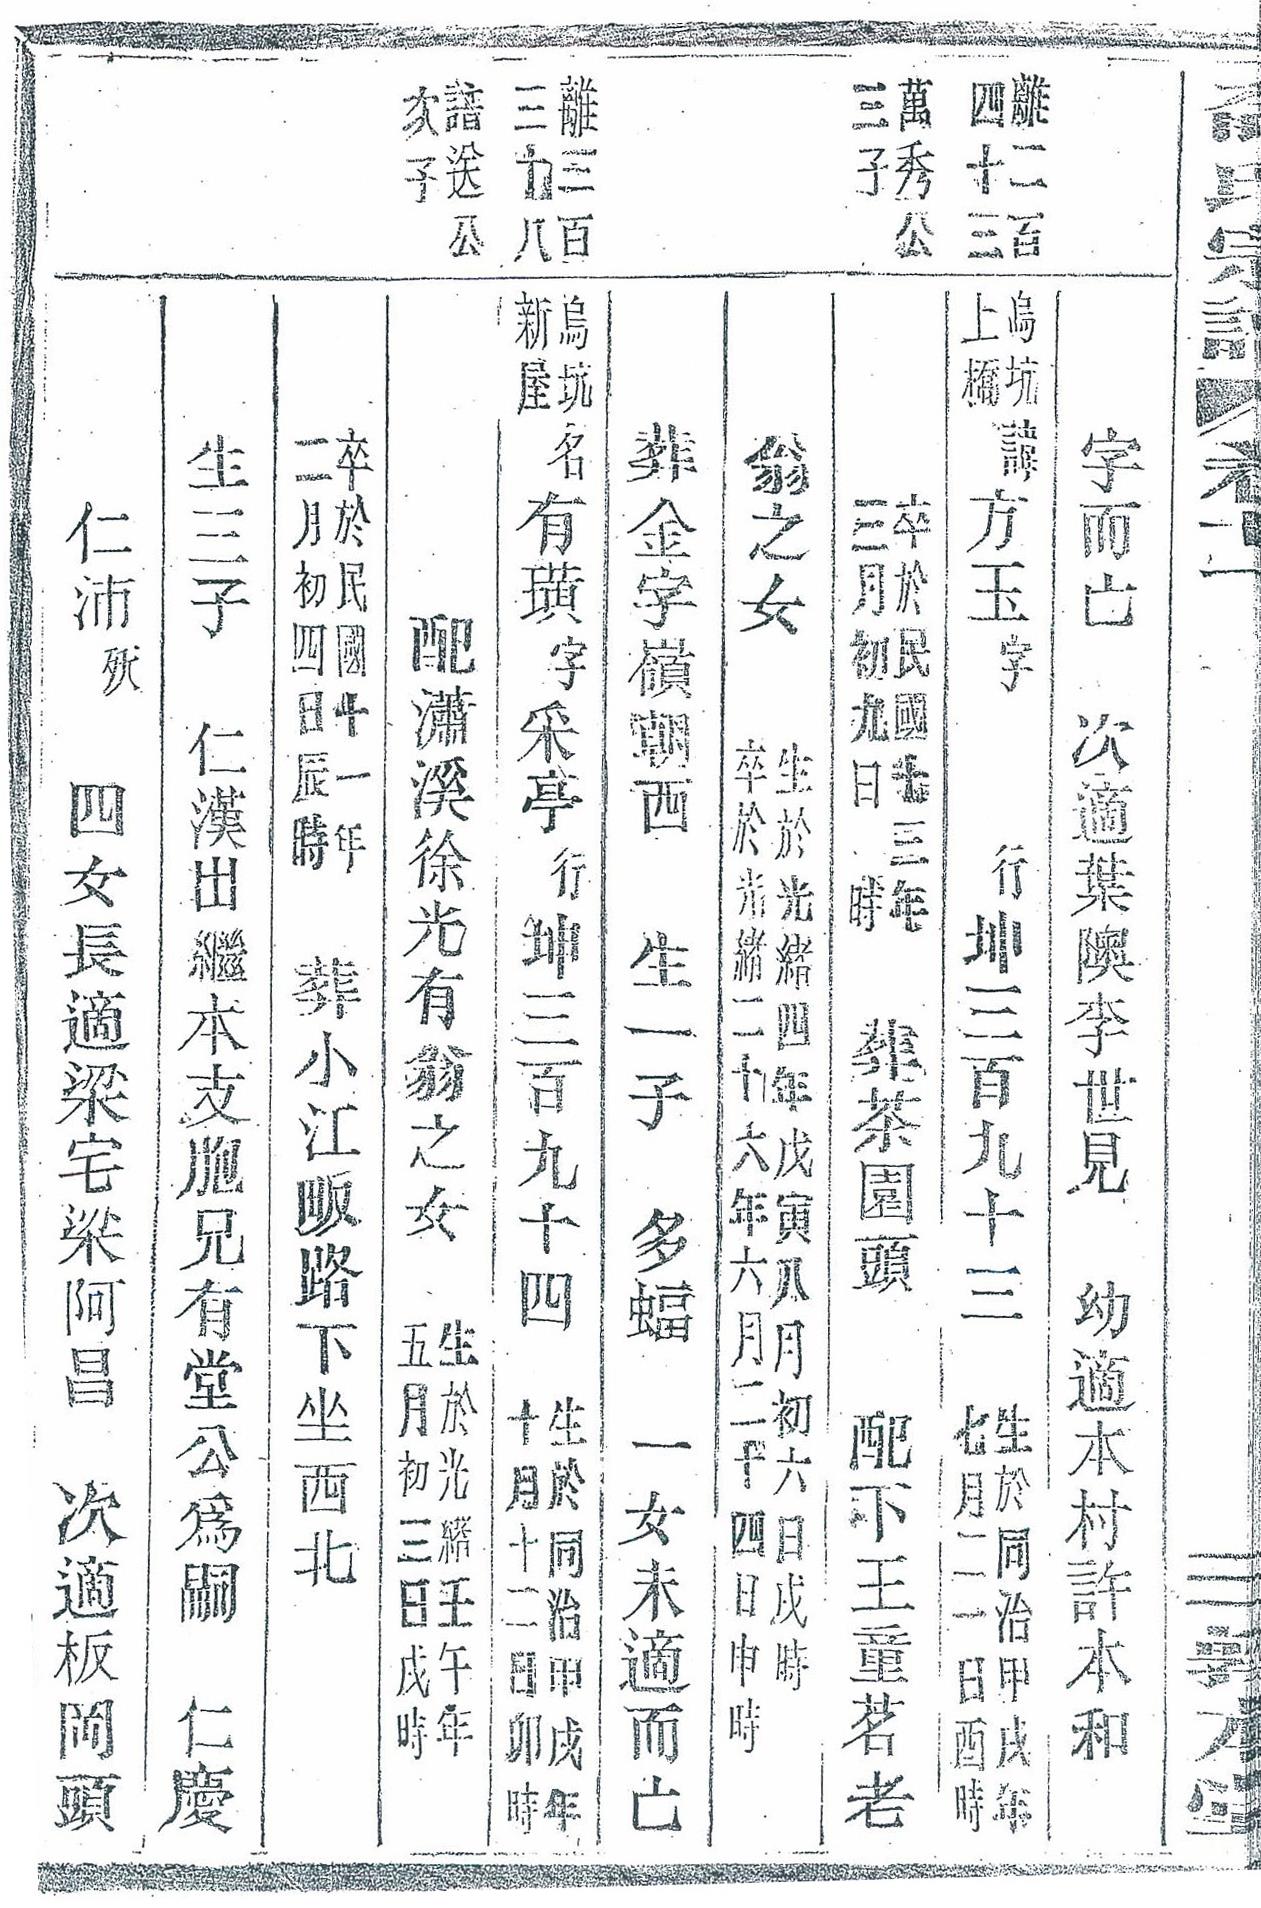 氏宗譜 卷二
字而亡 次適葉隩李世見 幼適本村許本和
離二百
四十三
烏坑
上橋
諱方玉字 行坤三百九十三
生於同治甲戌年
七月二二日酉時
萬秀公
三子
卒於民國七三年
三月初九日 時
葬茶園頭 配下王童茗老
翁之女
生於光緒四年戊寅八月初六日戌時
卒於光緒二十六年六月二十四日申時
葬金字嶺朝西 生一子 多蝠 一女未適而亡
離三百
三十八
烏坑
新屋
名有璜字采亭行坤三百九十四
生於同治甲戌年
十月十二日卯時
譜送公
次子
配瀟溪徐光有翁之女
生於光緒壬午年
五月初三日戌時
卒於民國十一年
二月初四日辰時
葬小江畈路下坐西北
生三子 仁漢出繼本支胞兄有堂公爲嗣 仁慶
仁沛殀 四女長適梁宅梁阿昌 次適板岡頭